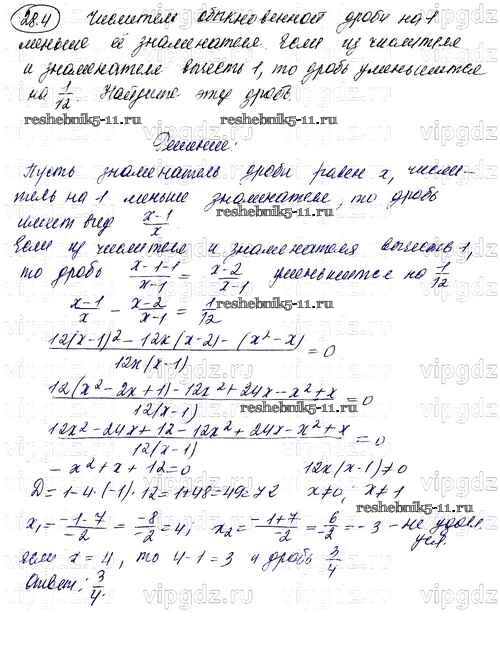 28.4 Числитель обыкновенной дроби на 1
меньше её знаменателя. Если из числителя
и знаменателя вычесть 1, то дробь уменьшится
на 1/12. Найдите эту дробь.
reshebnik5-11.ru reshebnik5-11.ru
Решение:
Пусть знаменатель дроби равен x, числи-
тель на 1 меньше знаменателя, то дробь
имеет вид (x-1)/x
reshebnik5-11.ru
Если из числителя и знаменателя вычесть 1,
то дробь (x-1-1)/(x-1) = (x-2)/(x-1) уменьшится на 1/12
(x-1)/x - (x-2)/(x-1) = 1/12
reshebnik5-11.ru
(12(x-1)² - 12x(x-2) - (x²-x))/(12x(x-1)) = 0
(12(x²-2x+1) - 12x²+24x-x²+x)/(12(x-1)) = 0
reshebnik5-11.ru
(12x²-24x+12-12x²+24x-x²+x)/(12(x-1)) = 0
-x²+x+12=0 12x(x-1)≠0
D=1-4·(-1)·12=1+48=49=7² x≠0; x≠1
x₁=(-1-7)/-2 = -8/-2 = 4; x₂=(-1+7)/-2 = 6/-2 = -3 - не удовл.
усл.
если x=4, то 4-1=3 и дробь 3/4
Ответ: 3/4.
reshebnik5-11.ru
vipgdz.ru